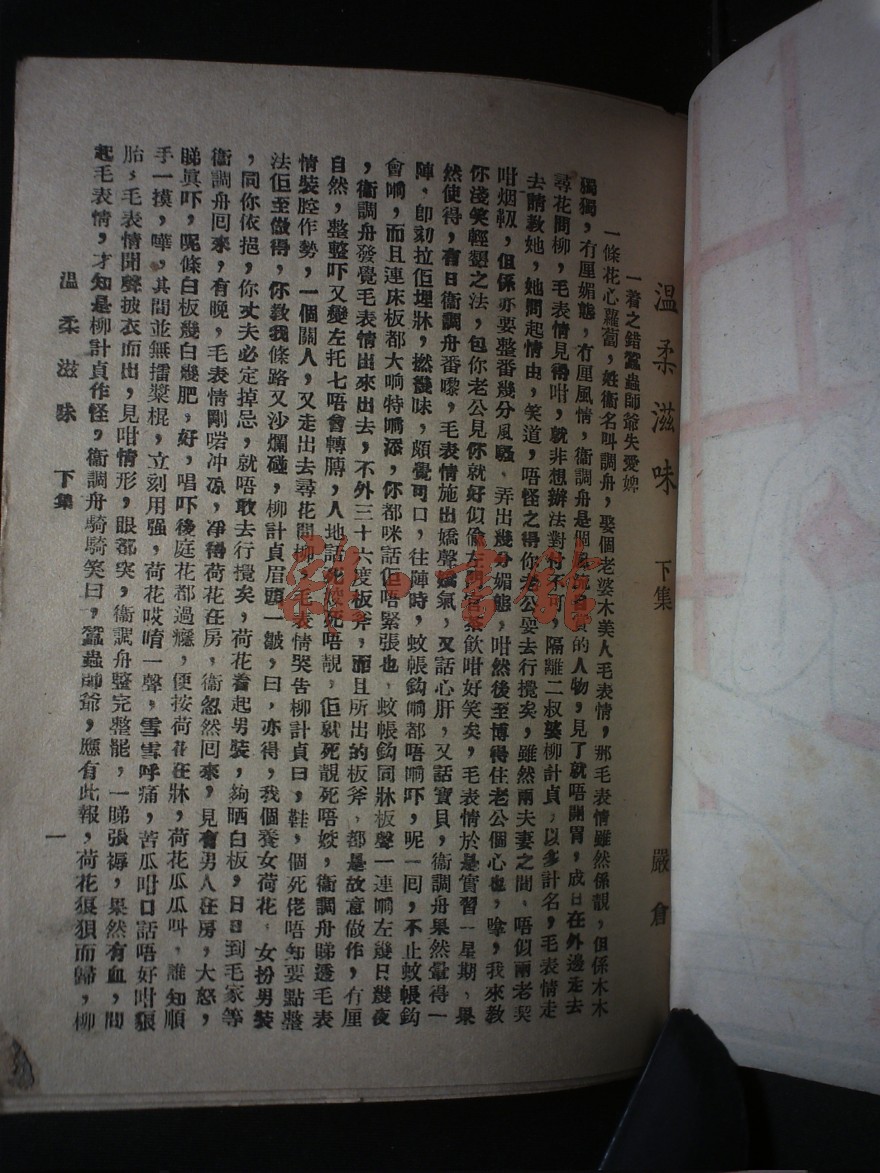 溫柔滋味 下集 嚴倉
一着之錯蠶蟲師爺失愛婢
一條花心蘿蔔，姓衞名叫調舟，娶個老婆木美人毛表情，那毛表情雖然係靚，但係木木
獨獨，冇厘媚態，冇厘風情，衞調舟是個風流自賞的人物，見了就唔開胃，成日在外邊走去
尋花問柳，毛表情見得咁，就非想辦法對付不可，隔離二叔婆柳計貞，以多計名，毛表情走
去請教她，她問起情由，笑道，唔怪之得你老公要去行攪矣，雖然兩夫妻之間，唔似兩老契
咁烟靱，但係亦要整番幾分風騷，弄出幾分媚態，咁然後至博得住老公個心也，嗱，我來教
你淺笑輕顰之法，包你老公見你就好似
然使得，有日衞調舟番嚟，毛表情施出嬌聲嬌氣，又話心肝，又話寶貝，衞調舟果然暈得一
陣，即刻拉佢埋牀，撚幾味，頗覺可口，往陣時，蚊帳鈎喐都唔喐吓，呢一囘，不止蚊帳鈎
會喐，而且連床板都大响特喐添，你都咪話佢唔緊張也，蚊帳鈎同牀板聲一連喐左幾日幾夜
，衞調舟發覺毛表情出來出去，不外三十六度板斧，而且所出的板斧，都是故意做作，冇厘
自然，整整吓又變左托七唔會轉膊，人地話死 死唔靚，佢就死靚死唔姣，衞調舟睇透毛表
情裝腔作勢，一個關人，又走出去尋花問柳，毛表情哭告柳計貞曰，鞋，個死佬唔知要點整
法佢至做得，你教我條路又沙爛碰，柳計貞眉頭一皺，曰，亦得，我個養女荷花，女扮男裝
，同你依挹，你丈夫必定掉忌，就唔敢去行攪矣，荷花着起男裝，夠晒白板，日日到毛家等
衞調舟囘來，有晚，毛表情剛啱冲凉，净得荷花在房，衞忽然囘來，見有男人在房，大怒，
睇眞吓，呢條白板幾白幾肥，好，唱吓後庭花都過癮，便按荷花在牀，荷花瓜瓜叫，誰知順
手一摸，嘩，其間並無擂漿棍，立刻用强，荷花哎唷一聲，雪雪呼痛，苦瓜咁口話唔好咁狠
胎，毛表情聞聲披衣而出，見咁情形，眼都突，衞調舟整完整罷，一睇張褥，果然有血，問
起毛表情，才知是柳計貞作怪，衞調舟騎騎笑曰，蠶蟲師爺，應有此報，荷花狼狽而歸，柳
溫柔滋味 下集 一